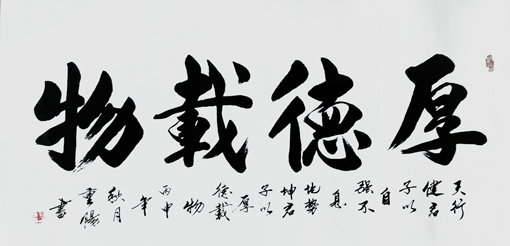 厚德載物
天行
健君
子以
自
強不
息
地势
坤君
子以
厚
德載
物
丙申
年
秋月
重陽
書